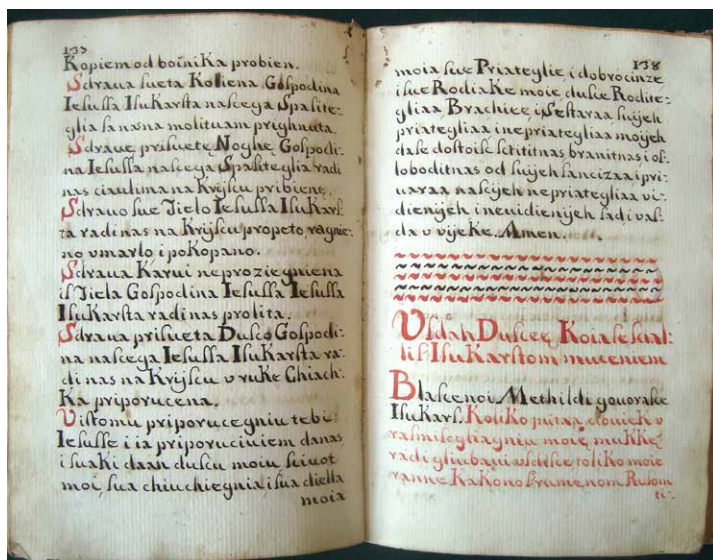 135
Kopiem od boinika probien.
Sdraua sueta Koliena Gospodina
Iesussa Isukarsta nascega Spasite:
glia sanasna molituam prighnuta.
Sdraue prisuete Noghe Gospodi:
na Iesussa nascega Spasiteglia radi
nas ciaulima na Krijscu pribiene.
Sdrauo sue Tielo Iesussa Isukars:
ta radi nas na Krijscu propeto, ragnie:
no vmarlo, i pokopano.
Sdraua Karui neproziegniena
is Tiela Gospodina Iesussa Iesussa
Isukarsta radi nas prolita.
Sdraua prisueta Dusco Gospodi:
na nascega Iesussa Isukarsta ra:
di nas na Krijscu v ruke Chiach:
ka priporucena.
V istomu priporucegniu tebi
Iesusse i ia priporuciuiem danas
i suaki daan duscu moiu sciuot
moi, sua chiuchiegnia, i sua diella
moia
138
moia sue Priateglie, i dobrocinze
i sue Rodiake moie, dusce Rodite:
gliaa, Brachiee, i Sestaraa, suijeh
priateglia a i nepriategliaa moijeh
dase dostoise sctititnas, branitnas, i os:
loboditnas od suijeh sancizaa i pri:
uaraa nascijeh nepriategliaa vi:
dienijeh i neuidienijeh sad, i vas:
da v vijeke. Amen.
Vsdah Duscee, Koia se scial:
lis Isukarstom muceniem
Blascenoi Methildi gouorasce
Isukars. Koliko putaa clouiek v
rasmiscgliagniu moie, mukke,
radi gliubaui vsdisce toliko moie
ranne Kakono srumenom Rusom
ti: